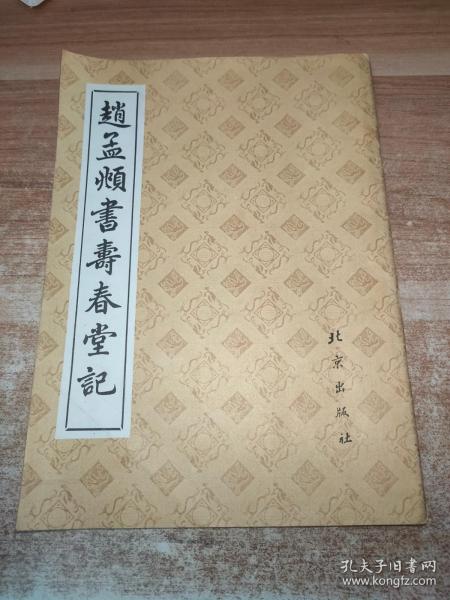 趙孟頫書壽春堂記
北京出版社
孔夫子旧书网
www.kongfz.com